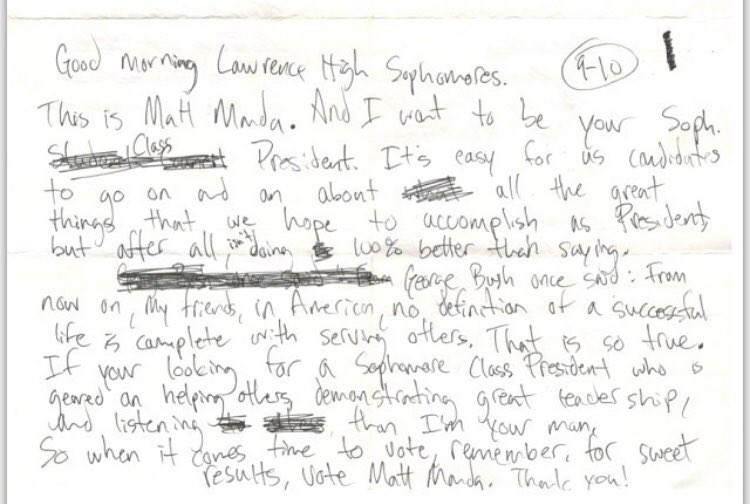 Good morning Lawrence High Sophomores. 9-10 1
This is Matt Manda. And I want to be your Soph.
Class President. It's easy for us candidates
to go on and on about all the great
things that we hope to accomplish as President,
but after all, isn't doing 100% better than saying.
George Bush once said: From
now on, my friends, in America, no definition of a successful
life is complete with serving others. That is so true.
If your looking for a Sophomore Class President who is
geared on helping others, demonstrating great leadership,
and listening than I'm your man.
So when it comes time to vote, remember, for sweet
results, vote Matt Manda. Thank you!